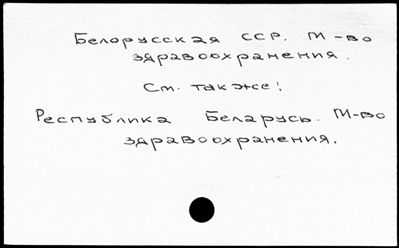 Белорусская ССР. М-во
здравоохранения.
См. также:
Республика Беларусь. М-во
здравоохранения.